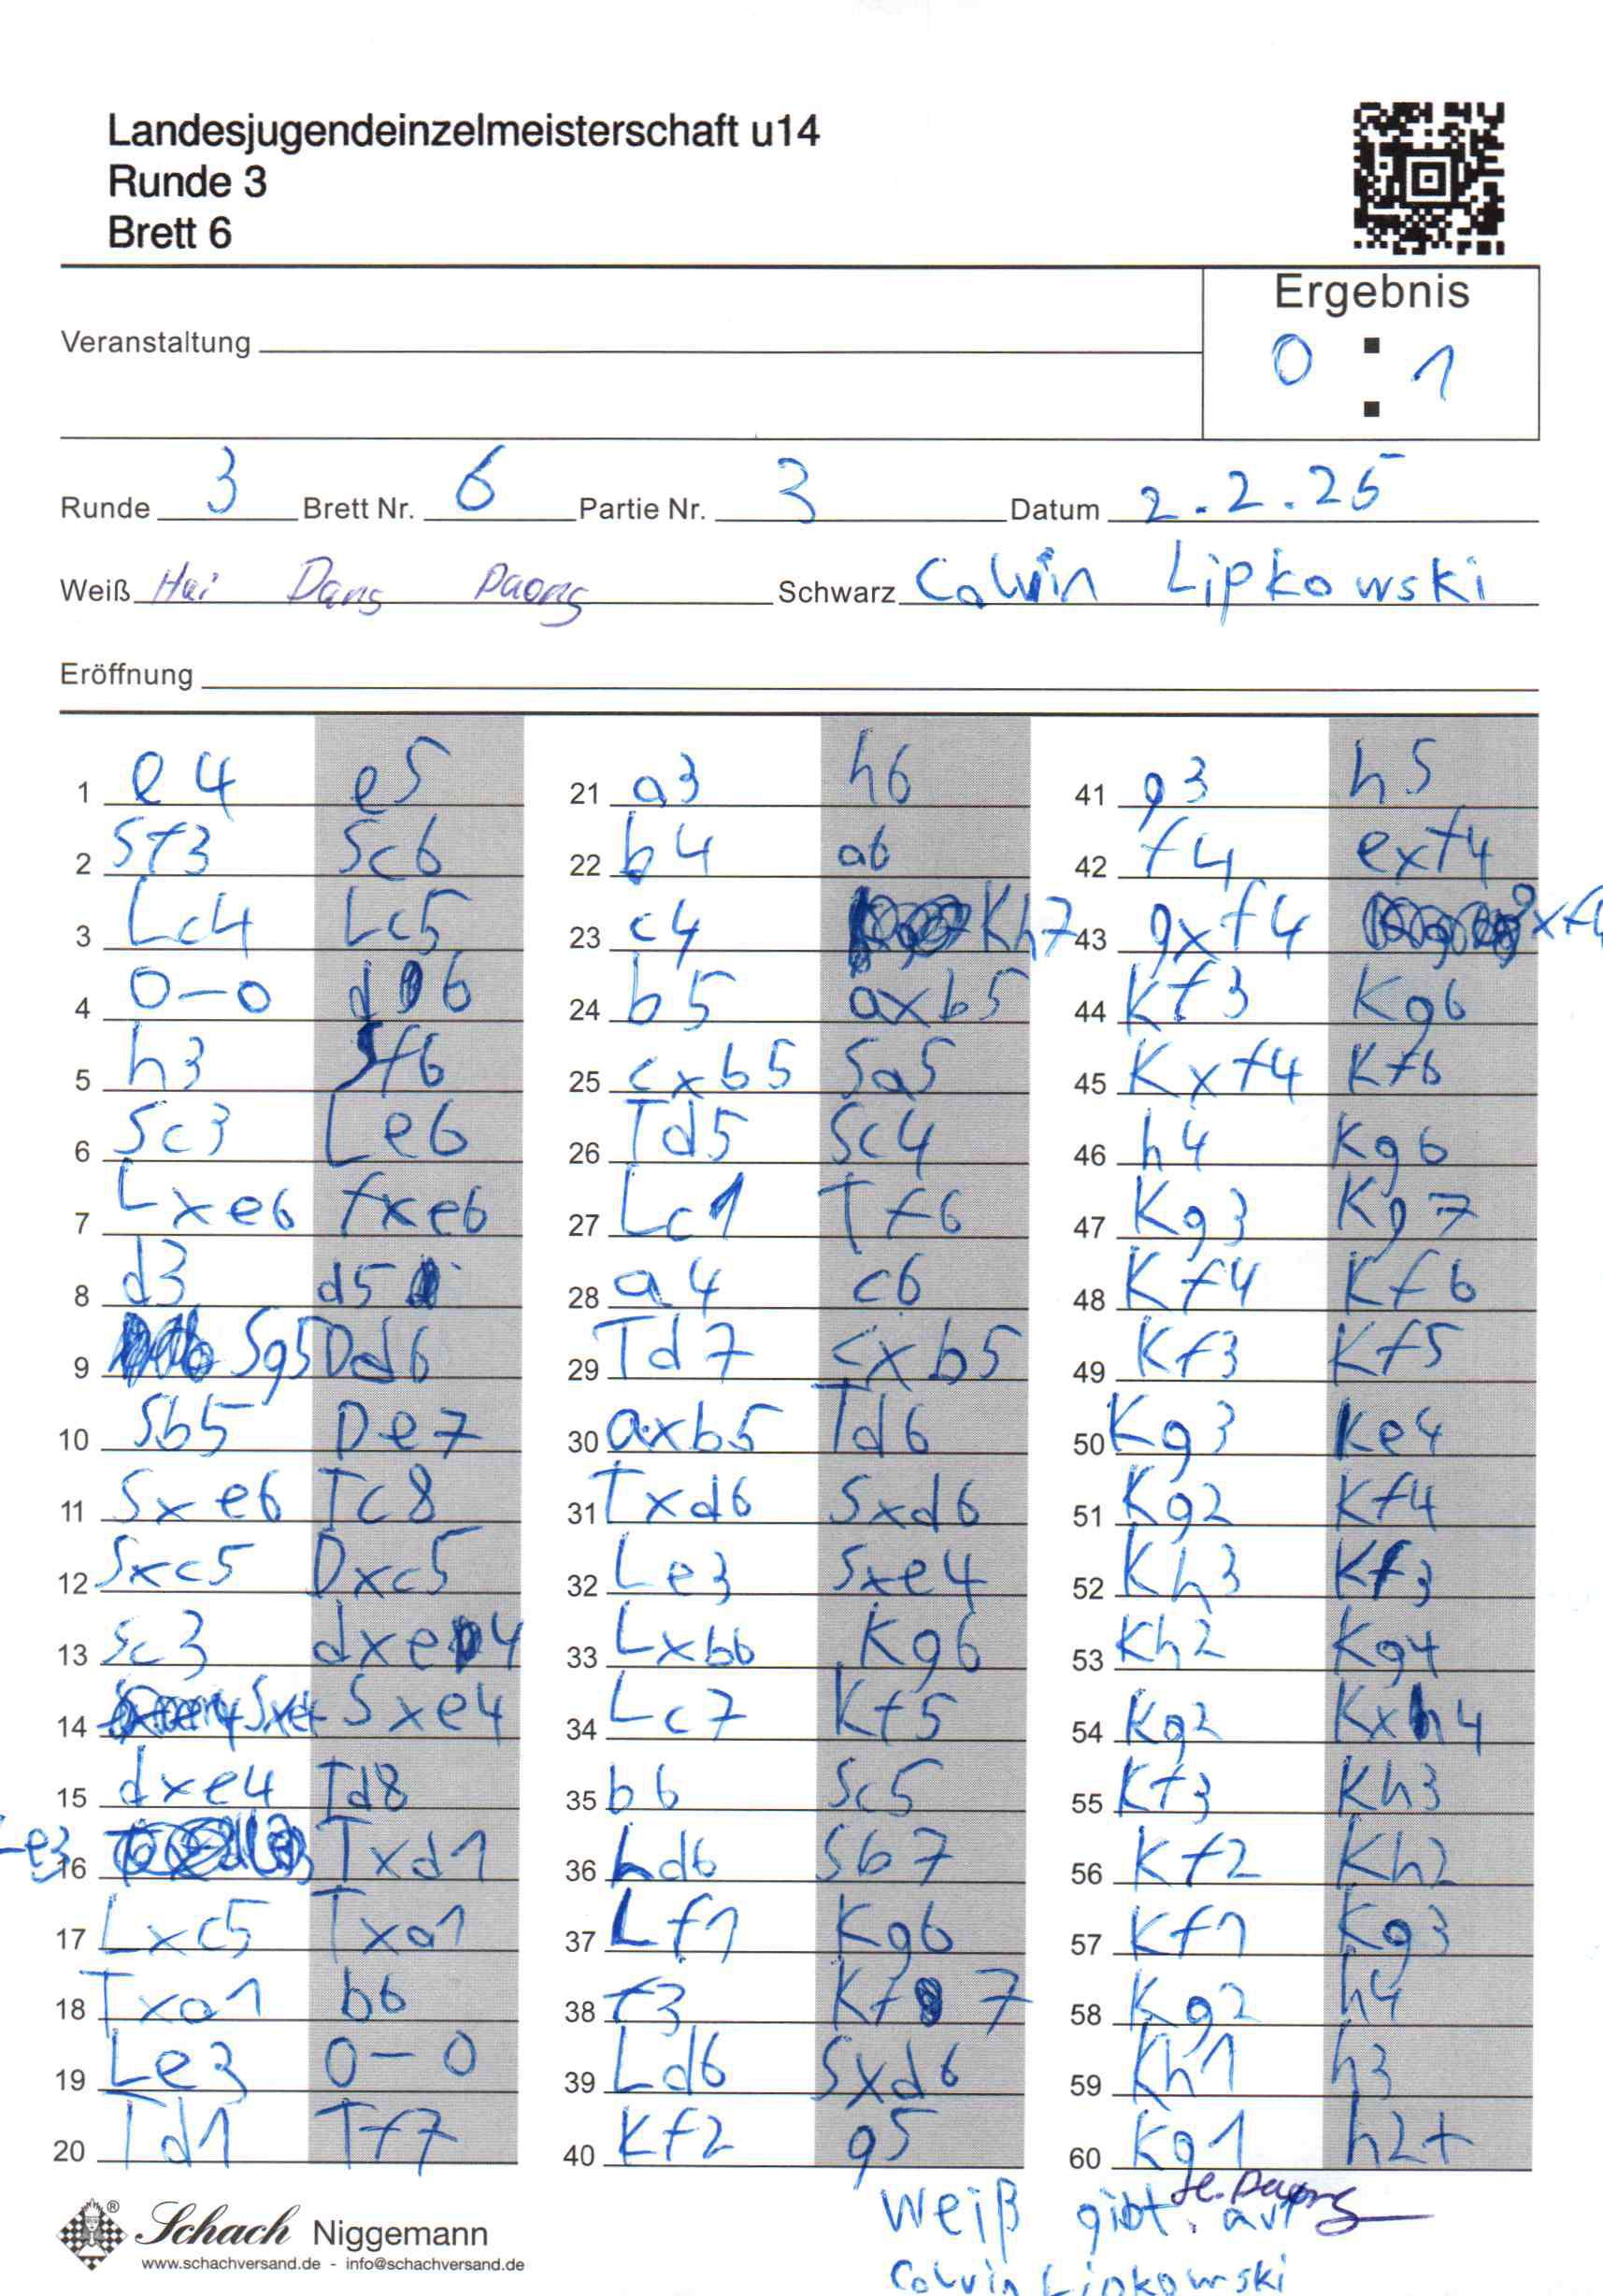 Landesjugendeinzelmeisterschaft u14
Runde 3
Brett 6
Ergebnis
0 : 1
Veranstaltung
Runde 3 Brett Nr. 6 Partie Nr. 3 Datum 2.2.25
Weiß Hai Dang Duong Schwarz Colvin Lipkowski
Eröffnung
1 e4 e5
2 Sf3 Sc6
3 Lc4 Lc5
4 0-0 d6
5 h3 Sf6
6 Sc3 Le6
7 Lxe6 fxe6
8 d3 d5
9 Sg5 Dd6
10 Sb5 De7
11 Sxe6 Tc8
12 Sxc5 Dxc5
13 Sc3 dxe4
14 Sxe4 Sxe4
15 dxe4 Td8
16 Le3 Txd1
17 Lxc5 Txa1
18 Txa1 b6
19 Le3 0-0
20 Td1 Tf7
21 a3 h6
22 b4 a6
23 c4 Kh7
24 b5 axb5
25 cxb5 Sa5
26 Td5 Sc4
27 Lc1 Tf6
28 a4 c6
29 Td7 cxb5
30 axb5 Td6
31 Txd6 Sxd6
32 Le3 Sxe4
33 Lxb6 Kg6
34 Lc7 Kf5
35 b6 Sc5
36 Ld6 Sb7
37 Lf1 Kg6
38 f3 Kf7
39 Ld6 Sxd6
40 Kf2 g5
41 g3 h5
42 f4 exf4
43 gxf4 gxf4
44 Kf3 Kg6
45 Kxf4 Kf6
46 h4 Kg6
47 Kg3 Kg7
48 Kf4 Kf6
49 Kf3 Kf5
50 Kg3 Ke4
51 Kg2 Kf4
52 Kh3 Kf3
53 Kh2 Kg4
54 Kg2 Kxh4
55 Kf3 Kh3
56 Kf2 Kh2
57 Kf1 Kg3
58 Kg2 h4
59 Kh1 h3
60 Kg1 h2+
Weiß gibt auf
Colvin Lipkowski
Schach Niggemann
www.schachversand.de - info@schachversand.de